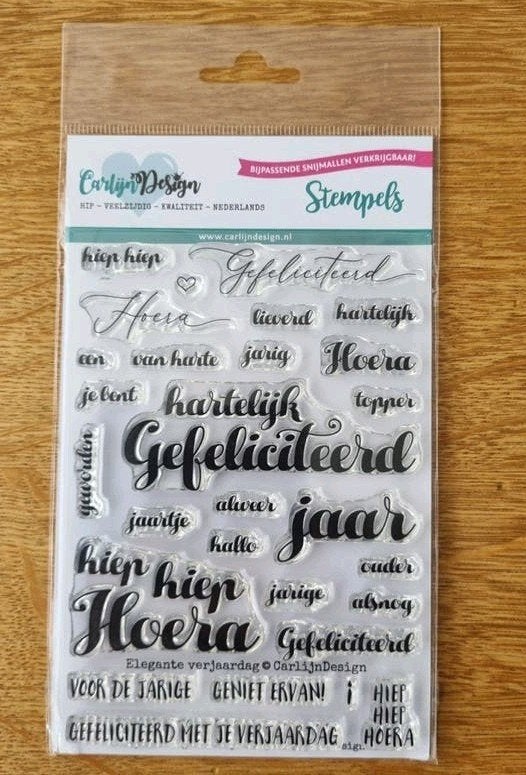 BIJPASSENDE SNIJMALLEN VERKRIJGBAAR!
CarlijnDesign
Stempels
HIP ~ VEELZIJDIG ~ KWALITEIT ~ NEDERLANDS
www.carlijndesign.nl
hiep hiep
Gefeliciteerd
Hoera
lieverd
hartelijk
een
van harte
jarig
Hoera
je bent
hartelijk
topper
Gefeliciteerd
geworden
alweer
jaar
jaartje
hallo
hiep hiep
ouder
jarige
alsnog
Hoera
Gefeliciteerd
Elegante verjaardag © CarlijnDesign
VOOR DE JARIGE
GENIET ERVAN!
HIEP
HIEP
GEFELICITEERD MET JE VERJAARDAG
sign.
HOERA